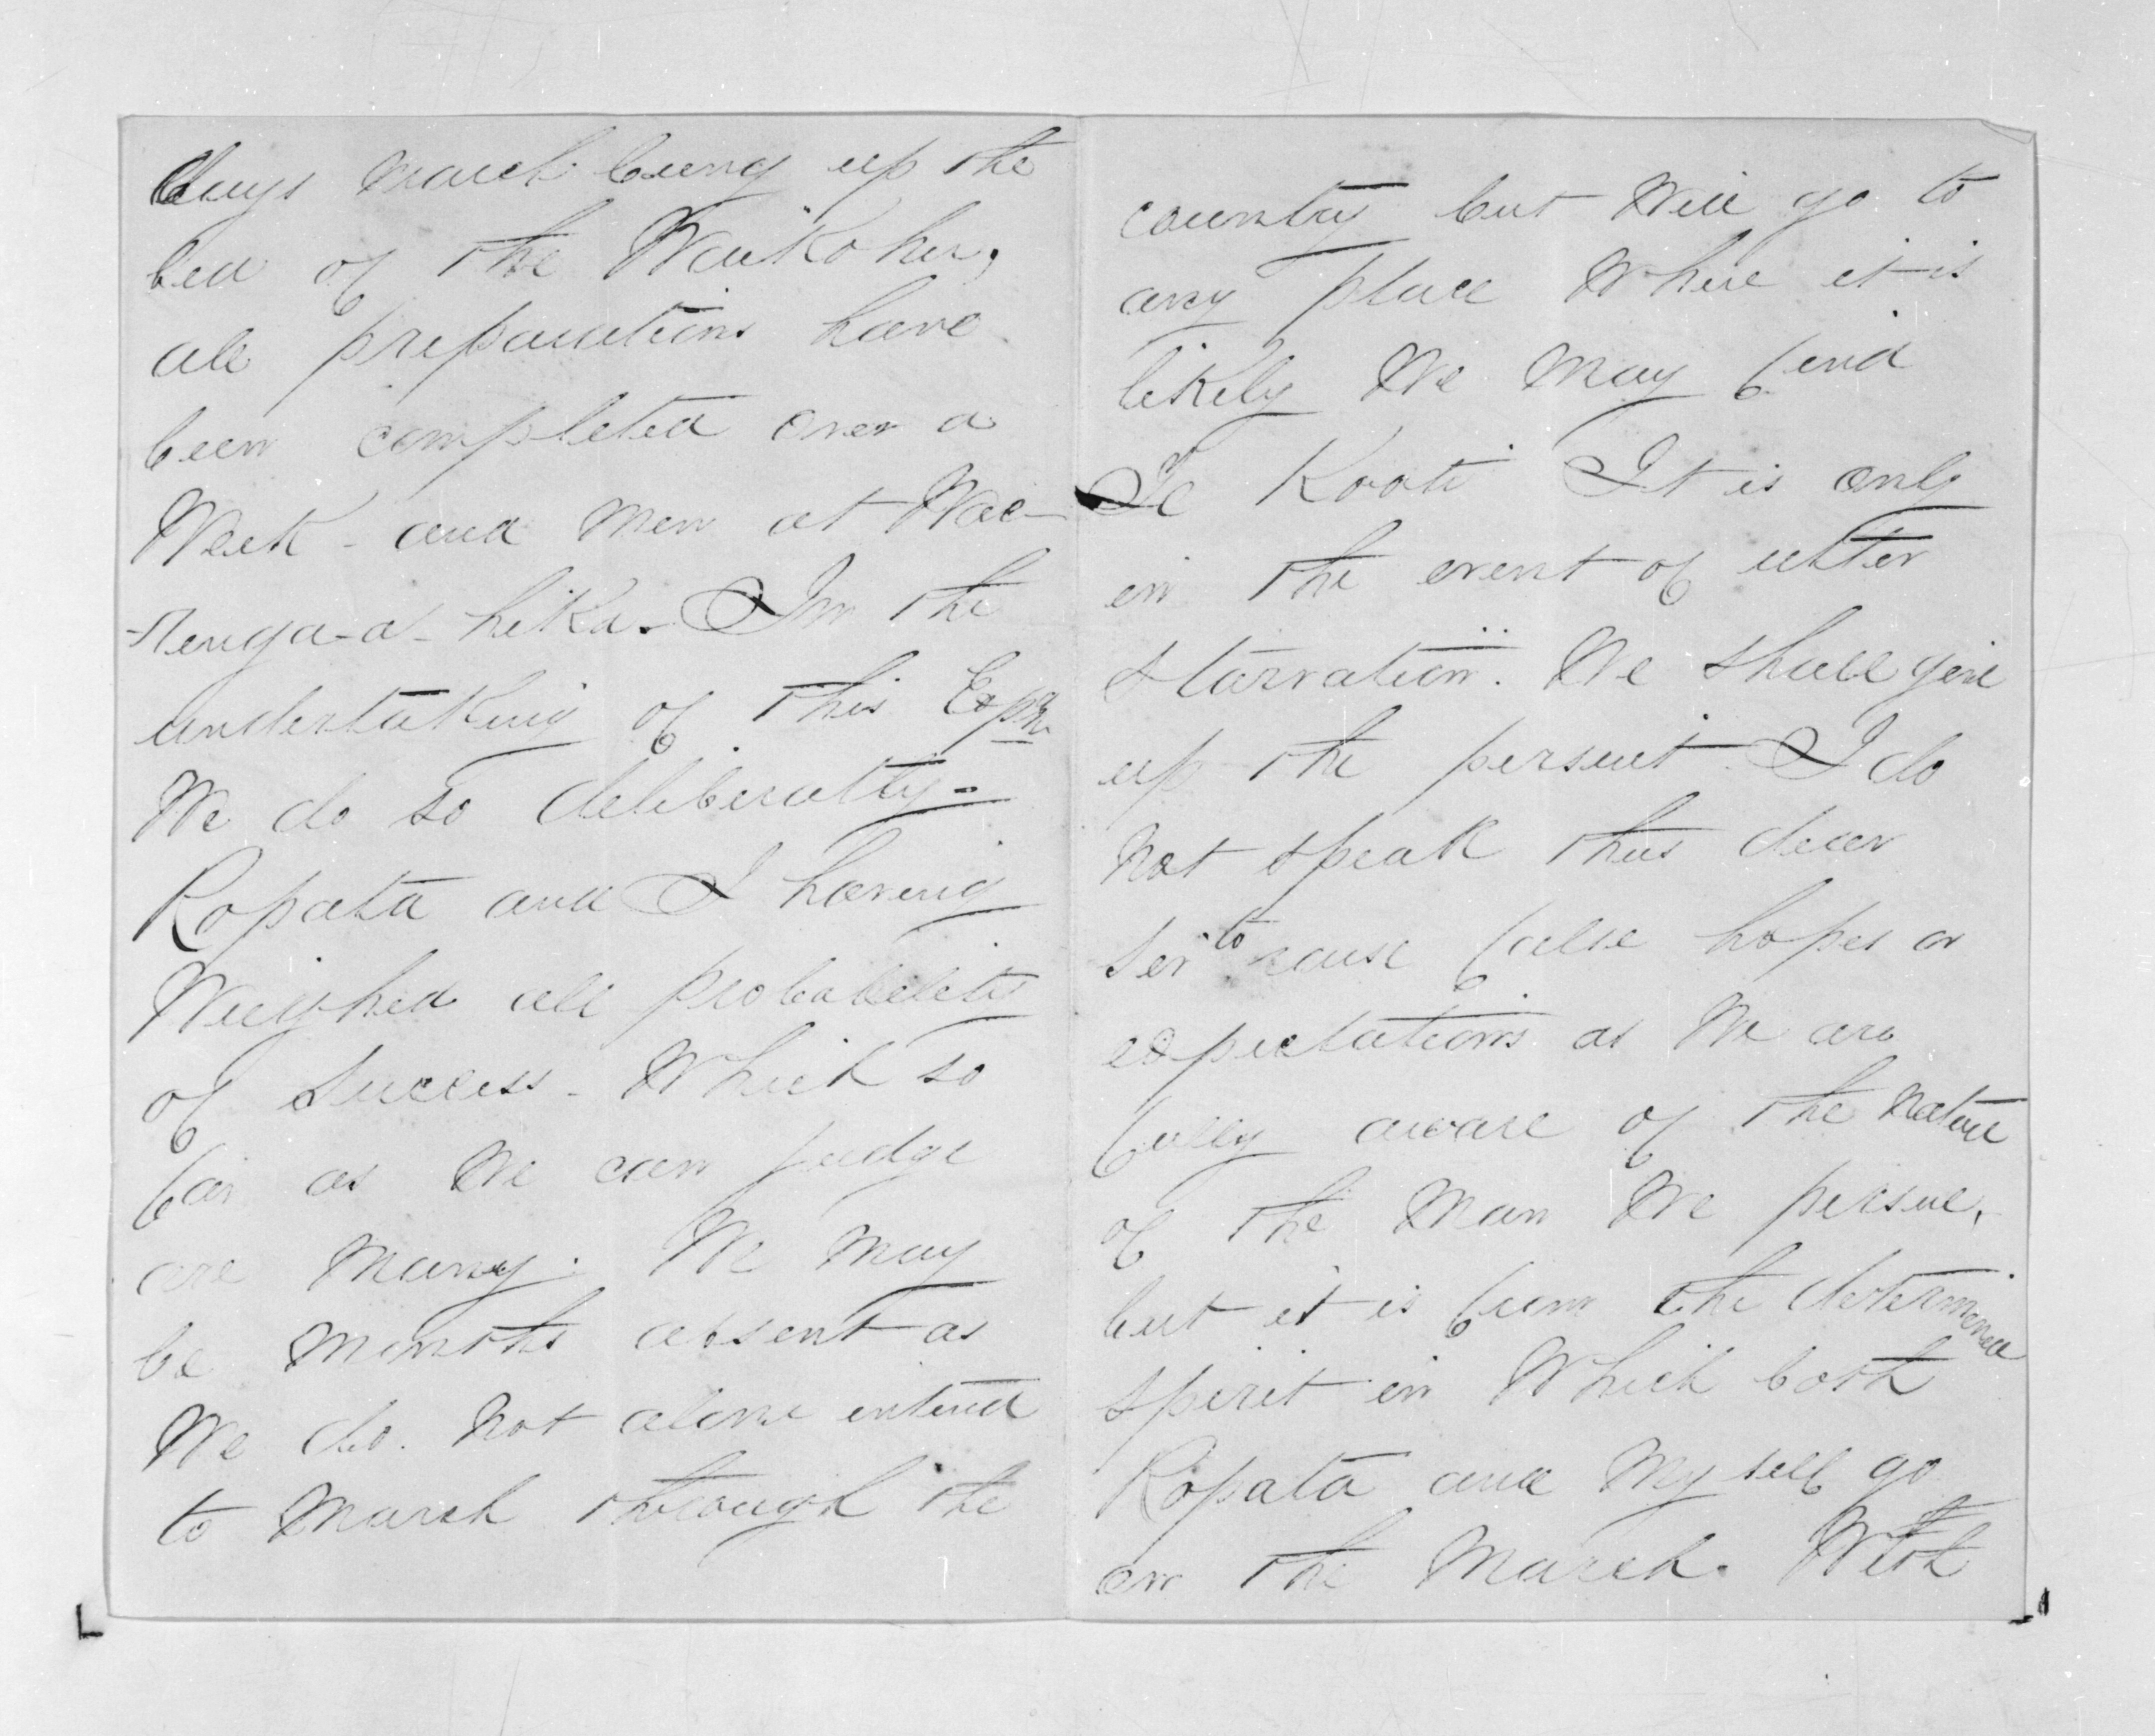 days march being up the
bed of the Waikohu,
all preparations have
been completed over a
Week - and men at Wae-
-renga-a-hika. In the
undertaking of this Expn
We do so deliberatly -
Ropata and I having
Weighed all probabilitis
of Success - Which so
far as We can judge
are Many. We May
be Months absent as
We do. Not alone intend
to March through the
country but Will go to
any place Where it is
likely We May find
Te Kooti It is only
in the event of utter
starvation. We shall give
up the persuit. I do
Not speak thus dear
Sir to raise false hopes or
expectations as We are
fully aware of the Nature
of the Man We persue,
but it is from the determined
spirit in Which both
Ropata and Myself go
on the March. With